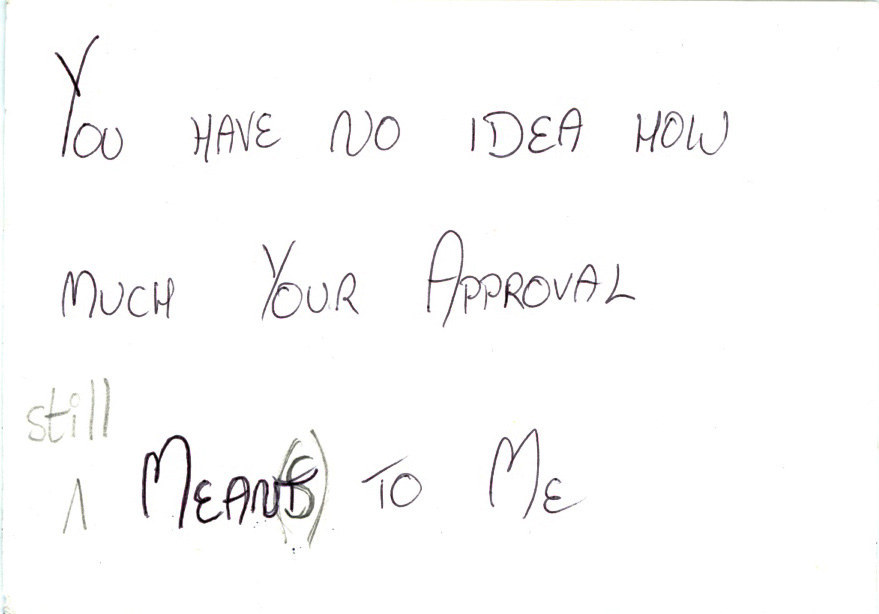 You HAVE NO IDEA HOW
MUCH YOUR APPROVAL
still
^ MEAN(S) TO ME